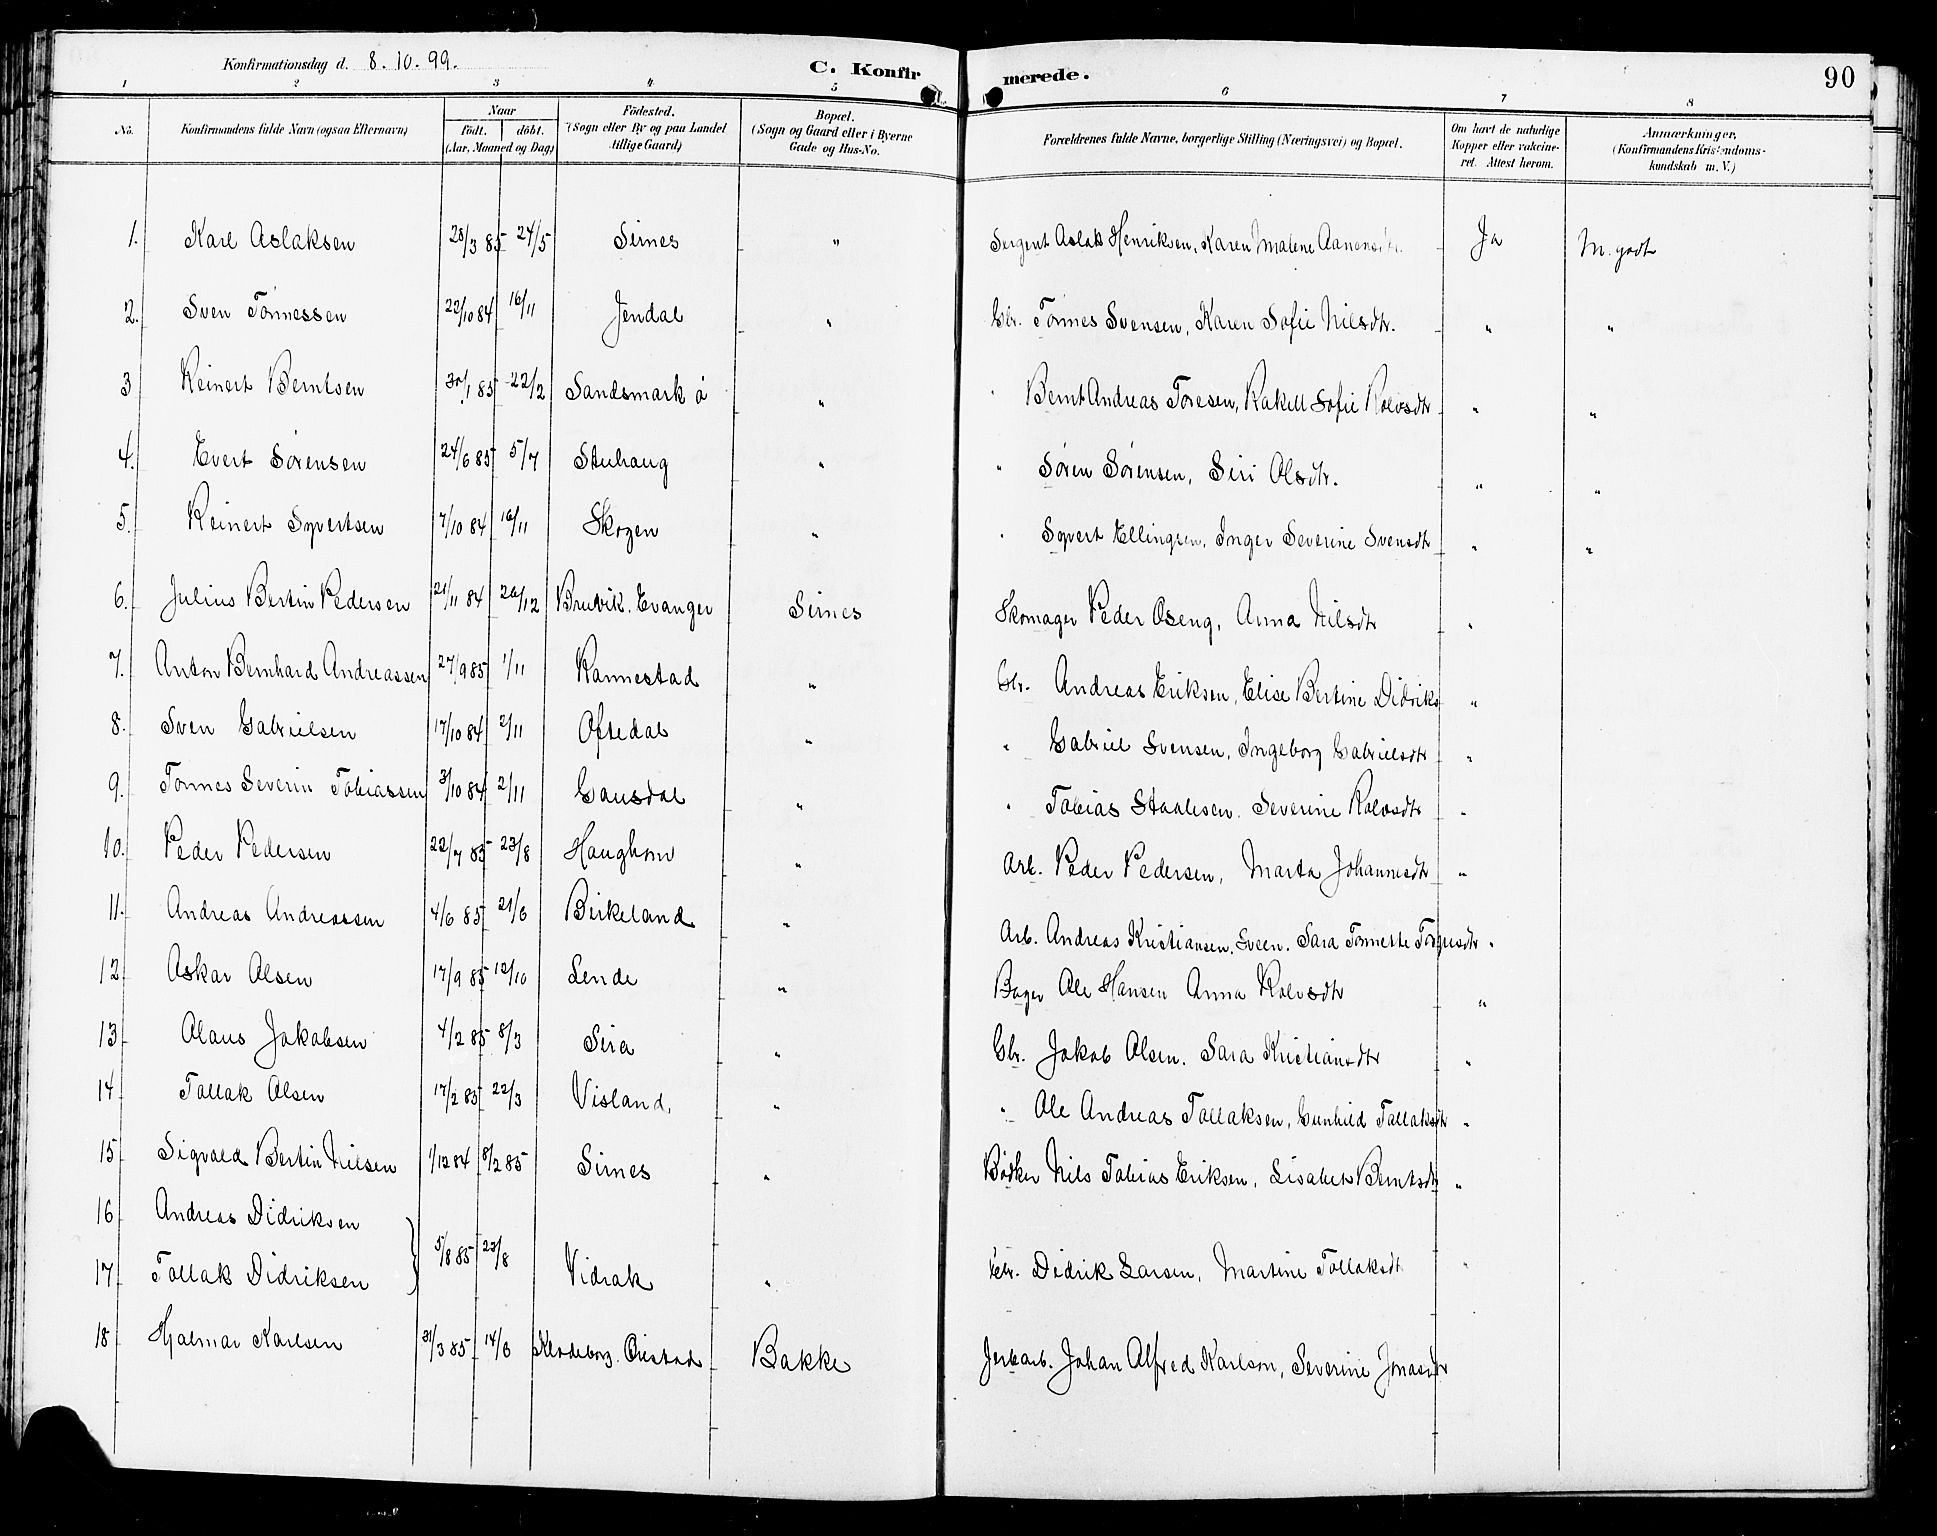 Konfirmationsdag d. 8.10.99.
C. Konfirmerede.
90
1 2 3 4 5 6 7 8
No. Konfirmandens fulde Navn (ogsaa Efternavn) Naar födt. döbt. (Aar, Maaned og Dag) Födested. (Sogn eller By og paa Landet tillige Gaard) Bopæl. (Sogn og Gaard eller i Byerne Gade og Hus-No. Forældrenes fulde Navne, borgerlige Stilling (Næringsvei) og Bopæl. Om havt de naturlige Kopper eller vakcineret. Attest herom. Anmærkninger, (Konfirmandens Kristendomskundskab m. V.)
1. Karl Aslaksen 28/3 85 24/5 Sirnes " Sergent Aslak Henriksen, Karen Malene Aanensdtr. Ja M. godt
2. Sven Tönnessen 22/10 84 16/11 Jendal " Gbr. Tönnes Svensen, Karen Sofie Nilsdtr. " "
3 Reinert Berntsen 30/1 85 22/2 Sandsmark ö " " Bernt Andreas Toresen, Rakell Sofie Rolvsdtr " "
4. Evert Sörensen 24/6 85 5/7 Stuhaug " " Sören Sörensen, Siri Olsdtr. " "
5. Reinert Syvertsen 7/10 84 16/11 Skogen " " Syvert Ellingsen, Inger Severine Svensdtr " "
6. Julius Bertin Pedersen 21/11 84 26/12 Bruvik. Evanger Sirnes Skomager Peder Oseng, Anna Nilsdtr "
7. Anton Bernhard Andreassen 27/9 85 1/11 Rannestad " Gbr. Andreas Eriksen, Elise Bertine Didriks "
8. Sven Gabrielsen 17/10 84 2/11 Oftedal " " Gabriel Svensen, Ingeborg Gabrielsdtr "
9. Tönnes Severin Tobiassen 3/10 84 2/11 Gausdal " " Tobias Staalesen. Severine Rolvsdtr "
10. Peder Pedersen 22/7 85 23/8 Haughom " Arb. Peder Pedersen, Marta Johannesdtr "
11. Andreas Andreassen 4/6 85 21/6 Birkeland " Arb. Andreas Kristiansen. Sveen. Sara Tönnette "
12 Oskar Olsen 17/9 85 12/10 Lende " Bager Ole Hansen Anna Rolvsdtr "
13 Olaus Jakobsen 4/2 85 8/3 Sira " Gbr. Jakob Olsen. Sara Kristiansdtr "
14 Tollak Olsen 17/2 85 22/3 Visland, " " Ole Andreas Tollaksen, Gunhild Tollaksdtr "
15 Sigvald Bertin Nilsen 1/12 84 8/2 85 Sirnes " Bödker Nils Tobias Eriksen, Lisabet Berntsdtr "
16 Andreas Didriksen
17 Tollak Didriksen } 5/8 85 23/8 Vidrak " Gbr. Didrik Larsen, Martine Tollaksdtr "
18 Hjalmar Karlsen 31/3 85 14/6 Öiestad Bakke Jerbarb. Johan Alfred Karlson, Severine Jonasdtr